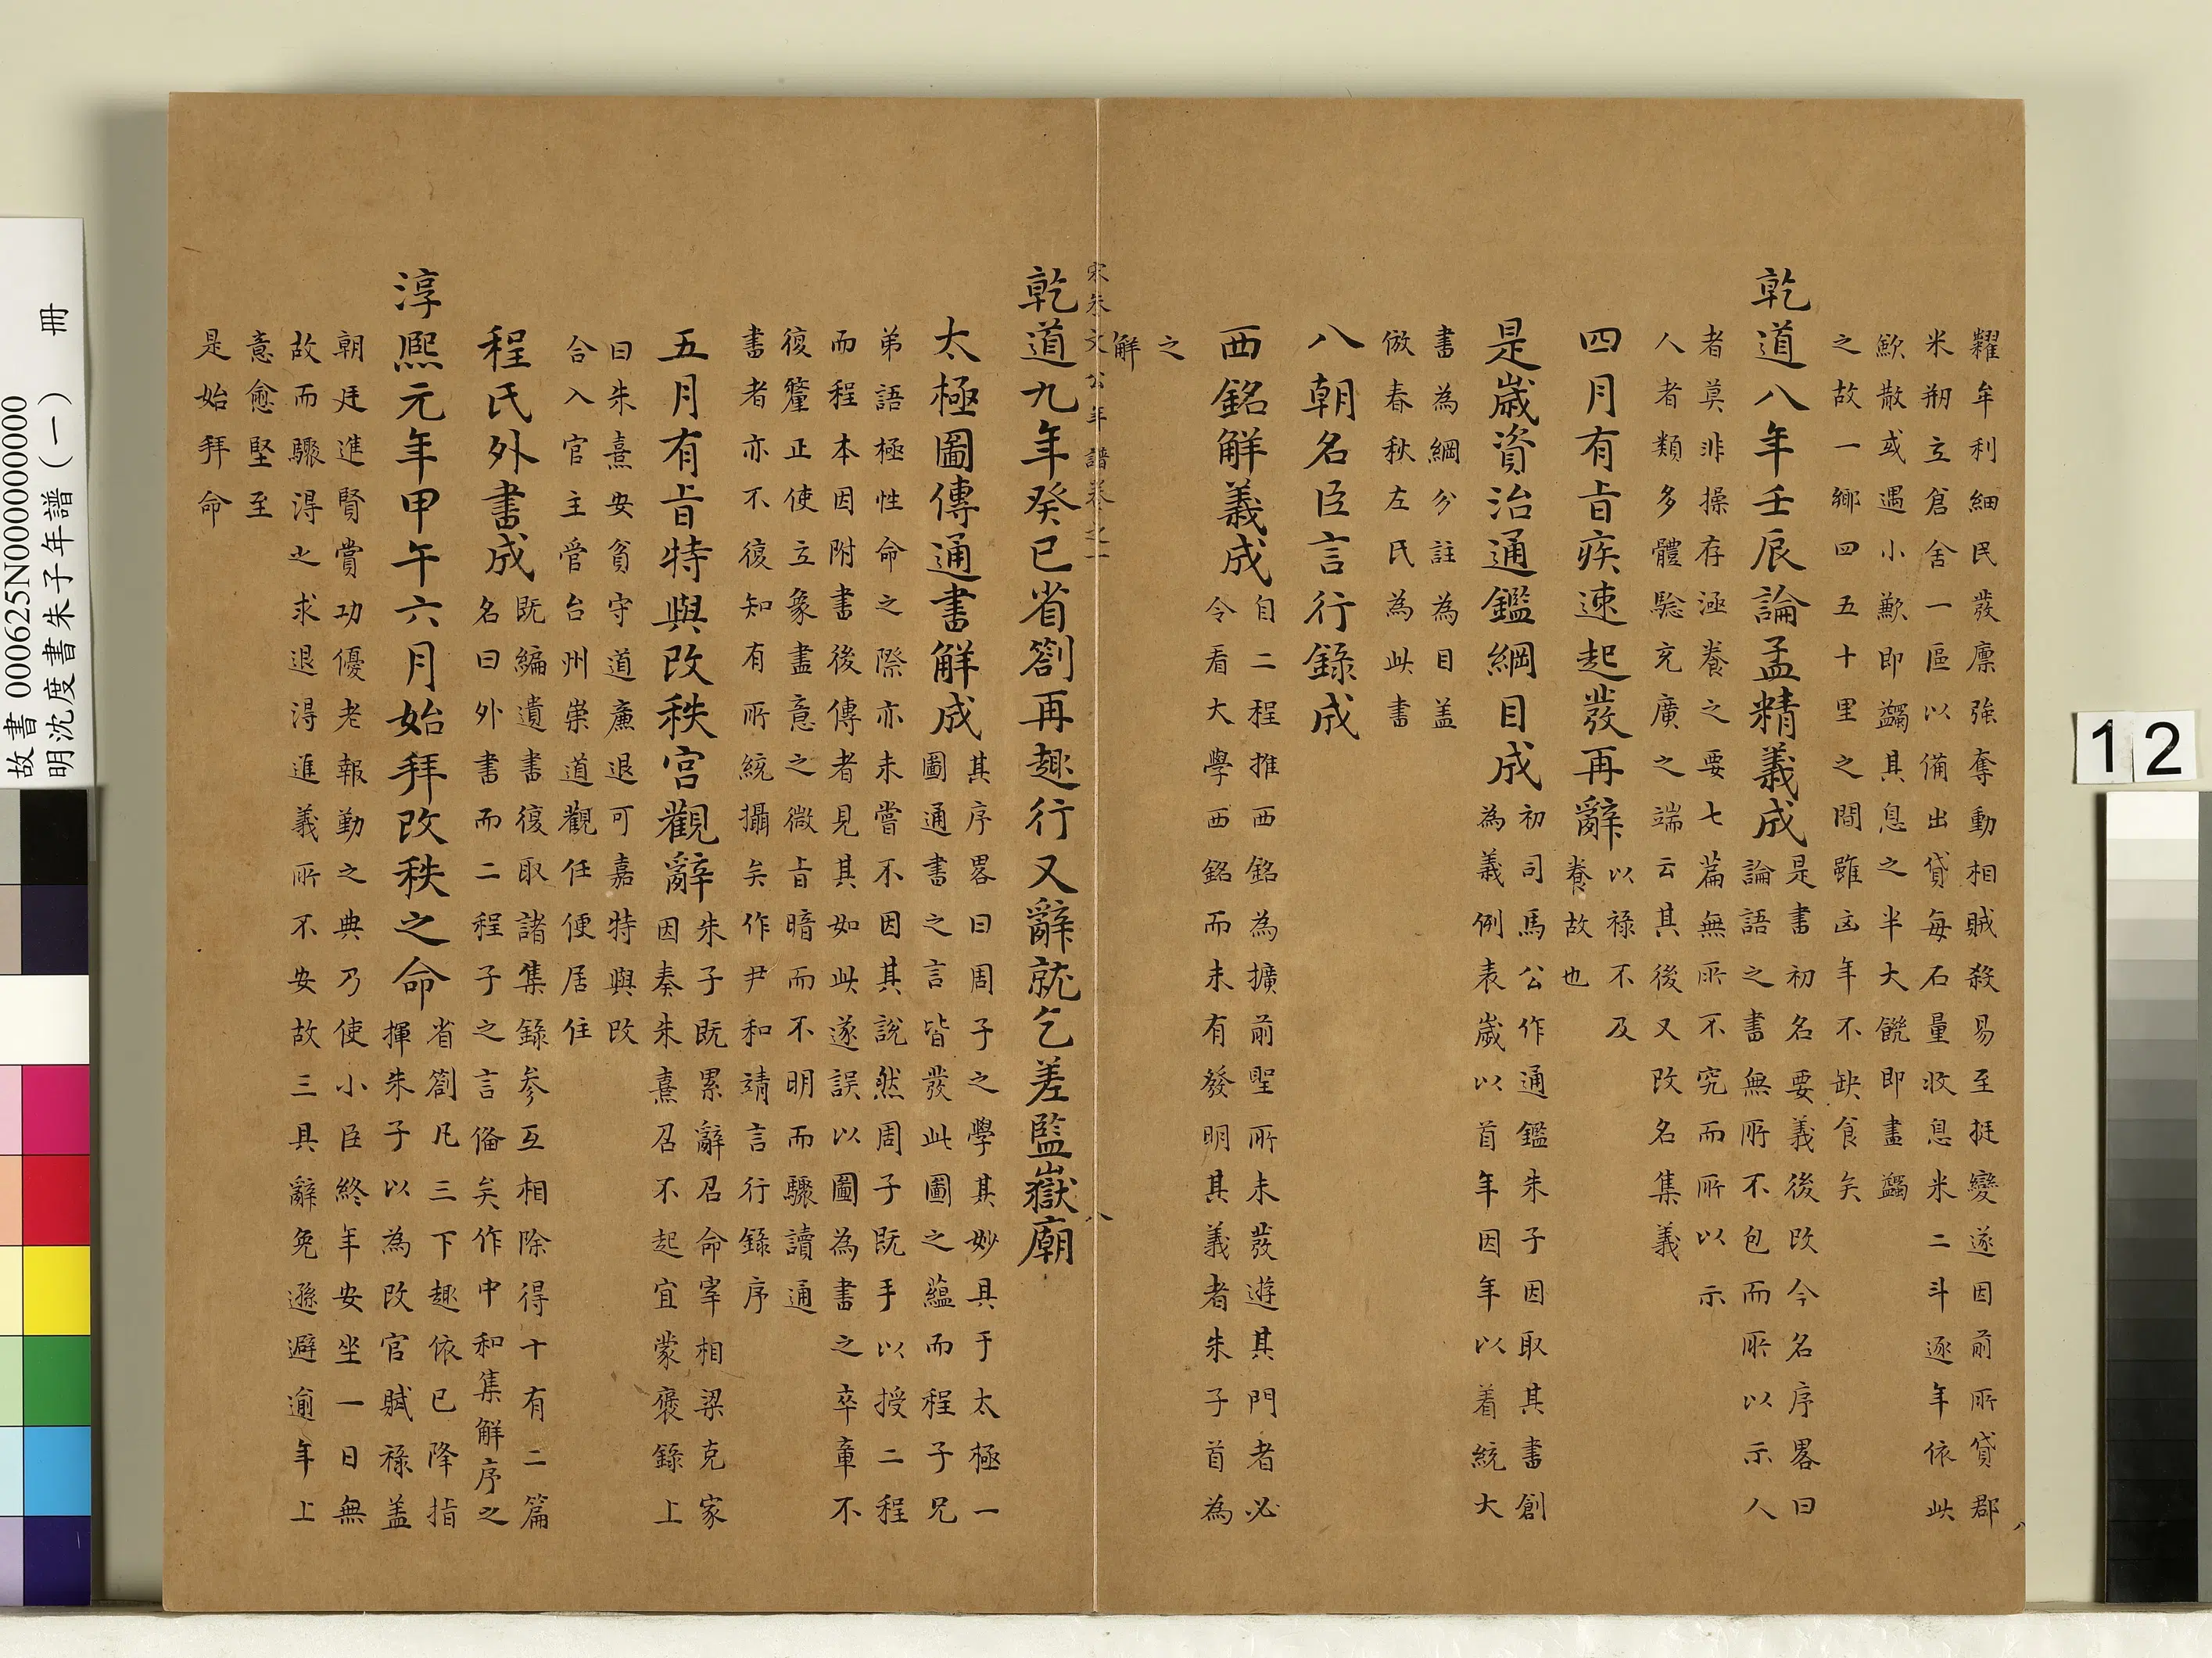 糴牟利細民發廪強奪動相賊殺易至挺變遂因前所貸郡
米刱立倉舍一區以備出貸每石量收息米二斗逐年依此
歛散或遇小歉即蠲其息之半大饑即盡蠲
之故一鄉四五十里之間雖凶年不缺食矣
乾道八年壬辰論孟精義成
是書初名要義後改今名序畧曰
論語之書無所不包而所以示人
者莫非操存涵養之要七篇無所不究而所以示
人者類多體驗充廣之端云其後又改名集義
四月有旨疾速起發再辭
以祿不及
養故也
是歲資治通鑑綱目成
初司馬公作通鑑朱子因取其書創
為義例表歲以首年因年以着統大
書為綱分註為目盖
倣春秋左氏為此書
八朝名臣言行錄成
西銘解義成
自二程推西銘為擴前聖所未發遊其門者必
令看大學西銘而未有發明其義者朱子首為
之
解
宋朱文公年譜卷之一
八
乾道九年癸巳省劄再趣行又辭就乞差監嶽廟
太極圖傳通書解成
其序畧曰周子之學其妙具于太極一
圖通書之言皆發此圖之蘊而程子兄
弟語極性命之際亦未嘗不因其說然周子既手以授二程
而程本因附書後傳者見其如此遂誤以圖為書之卒章不
復釐正使立象盡意之微旨暗而不明而驟讀通
書者亦不復知有所統攝矣作尹和靖言行錄序
五月有旨特與改秩宮觀辭
朱子既累辭召命宰相梁克家
因奏朱熹召不起宜蒙褒錄上
曰朱熹安貧守道廉退可嘉特與改
合入官主管台州崇道觀任便居住
程氏外書成
既編遺書復取諸集錄參互相除得十有二篇
名曰外書而二程子之言偹矣作中和集解序之
淳熙元年甲午六月始拜改秩之命
省劄凡三下趣依已降指
揮朱子以為改官賦祿盖
朝廷進賢賞功優老報勤之典乃使小臣終年安坐一日無
故而驟得之求退得進義所不安故三具辭免遜避逾年上
意愈堅至
是始拜命
故書 000625N000000000
明沈度書朱子年譜（一） 冊
12